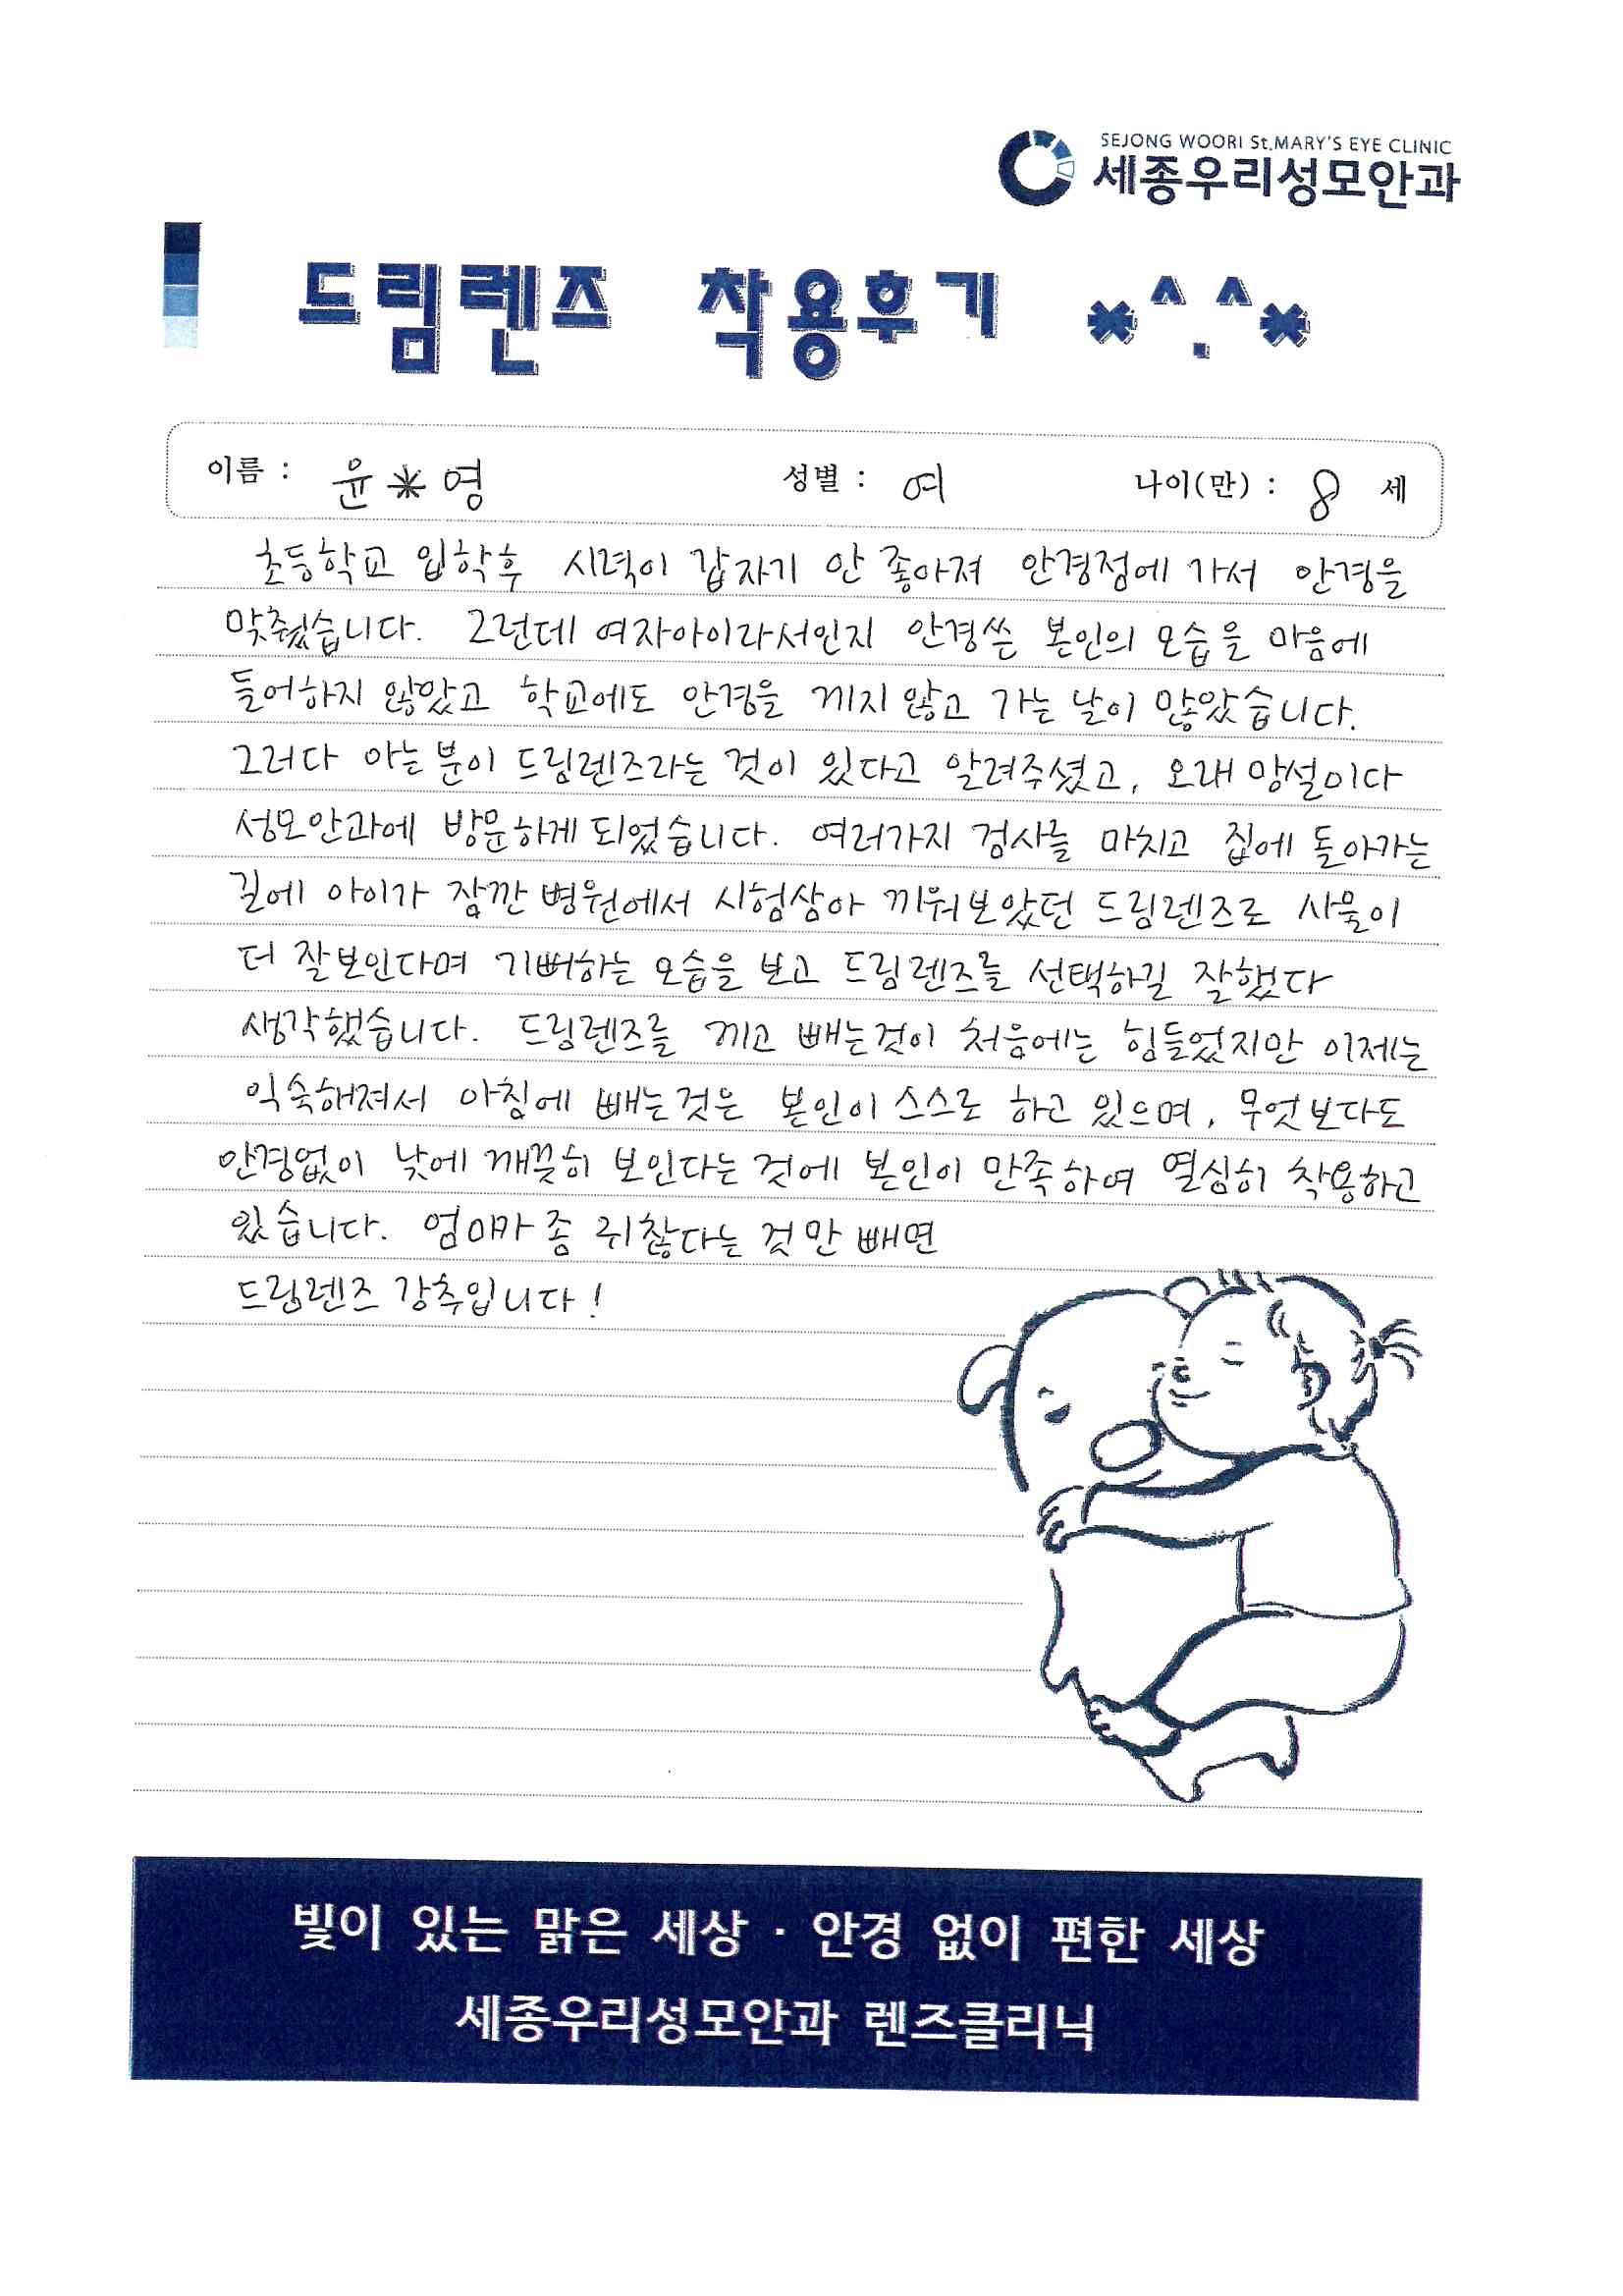 SEJONG WOORI St.MARY'S EYE CLINIC
세종우리성모안과
드림렌즈 착용후기 *^.^*
이름 : 윤*영 성별 : 여 나이(만) : 8 세
초등학교 입학후 시력이 갑자기 안 좋아져 안경점에 가서 안경을
맞췄습니다. 그런데 여자아이라서인지 안경쓴 본인의 모습을 마음에
들어하지 않았고 학교에도 안경을 끼지 않고 가는 날이 많았습니다.
그러다 아는 분이 드림렌즈라는 것이 있다고 알려주셨고, 오래 망설이다
성모안과에 방문하게 되었습니다. 여러가지 검사를 마치고 집에 돌아가는
길에 아이가 잠깐 병원에서 시험삼아 끼워보았던 드림렌즈로 사물이
더 잘보인다며 기뻐하는 모습을 보고 드림렌즈를 선택하길 잘했다
생각했습니다. 드림렌즈를 끼고 빼는것이 처음에는 힘들었지만 이제는
익숙해져서 아침에 빼는것은 본인이 스스로 하고 있으며, 무엇보다도
안경없이 낮에 깨끗히 보인다는 것에 본인이 만족하여 열심히 착용하고
있습니다. 엄마가 좀 귀찮다는 것만 빼면
드림렌즈 강추입니다!
빛이 있는 맑은 세상 · 안경 없이 편한 세상
세종우리성모안과 렌즈클리닉